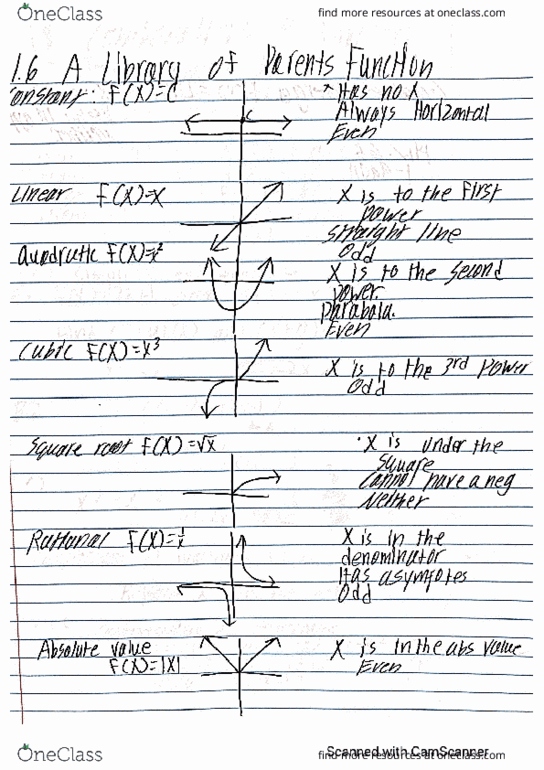 OneClass
find more resources at oneclass.com
1.6 A Library of Parents Function
Constant: F(X)=C
C
* Has no X
Always Horizontal
Even
Linear F(X)=X
X is to the First
power
straight line
Odd
Quadratic F(X)=x²
X is to the second
power.
Parabola.
Even
Cubic F(X)=X³
X is to the 3rd power
Odd
Square root F(X)=√x
·X is under the
square
cannot have a neg
Neither
Rational F(X)=1/x
X is in the
denominator
Has asymptotes
Odd
Absolute value
F(X)=|X|
X is in the abs value
Even
OneClass
Scanned with CamScanner
find more resources at oneclass.com